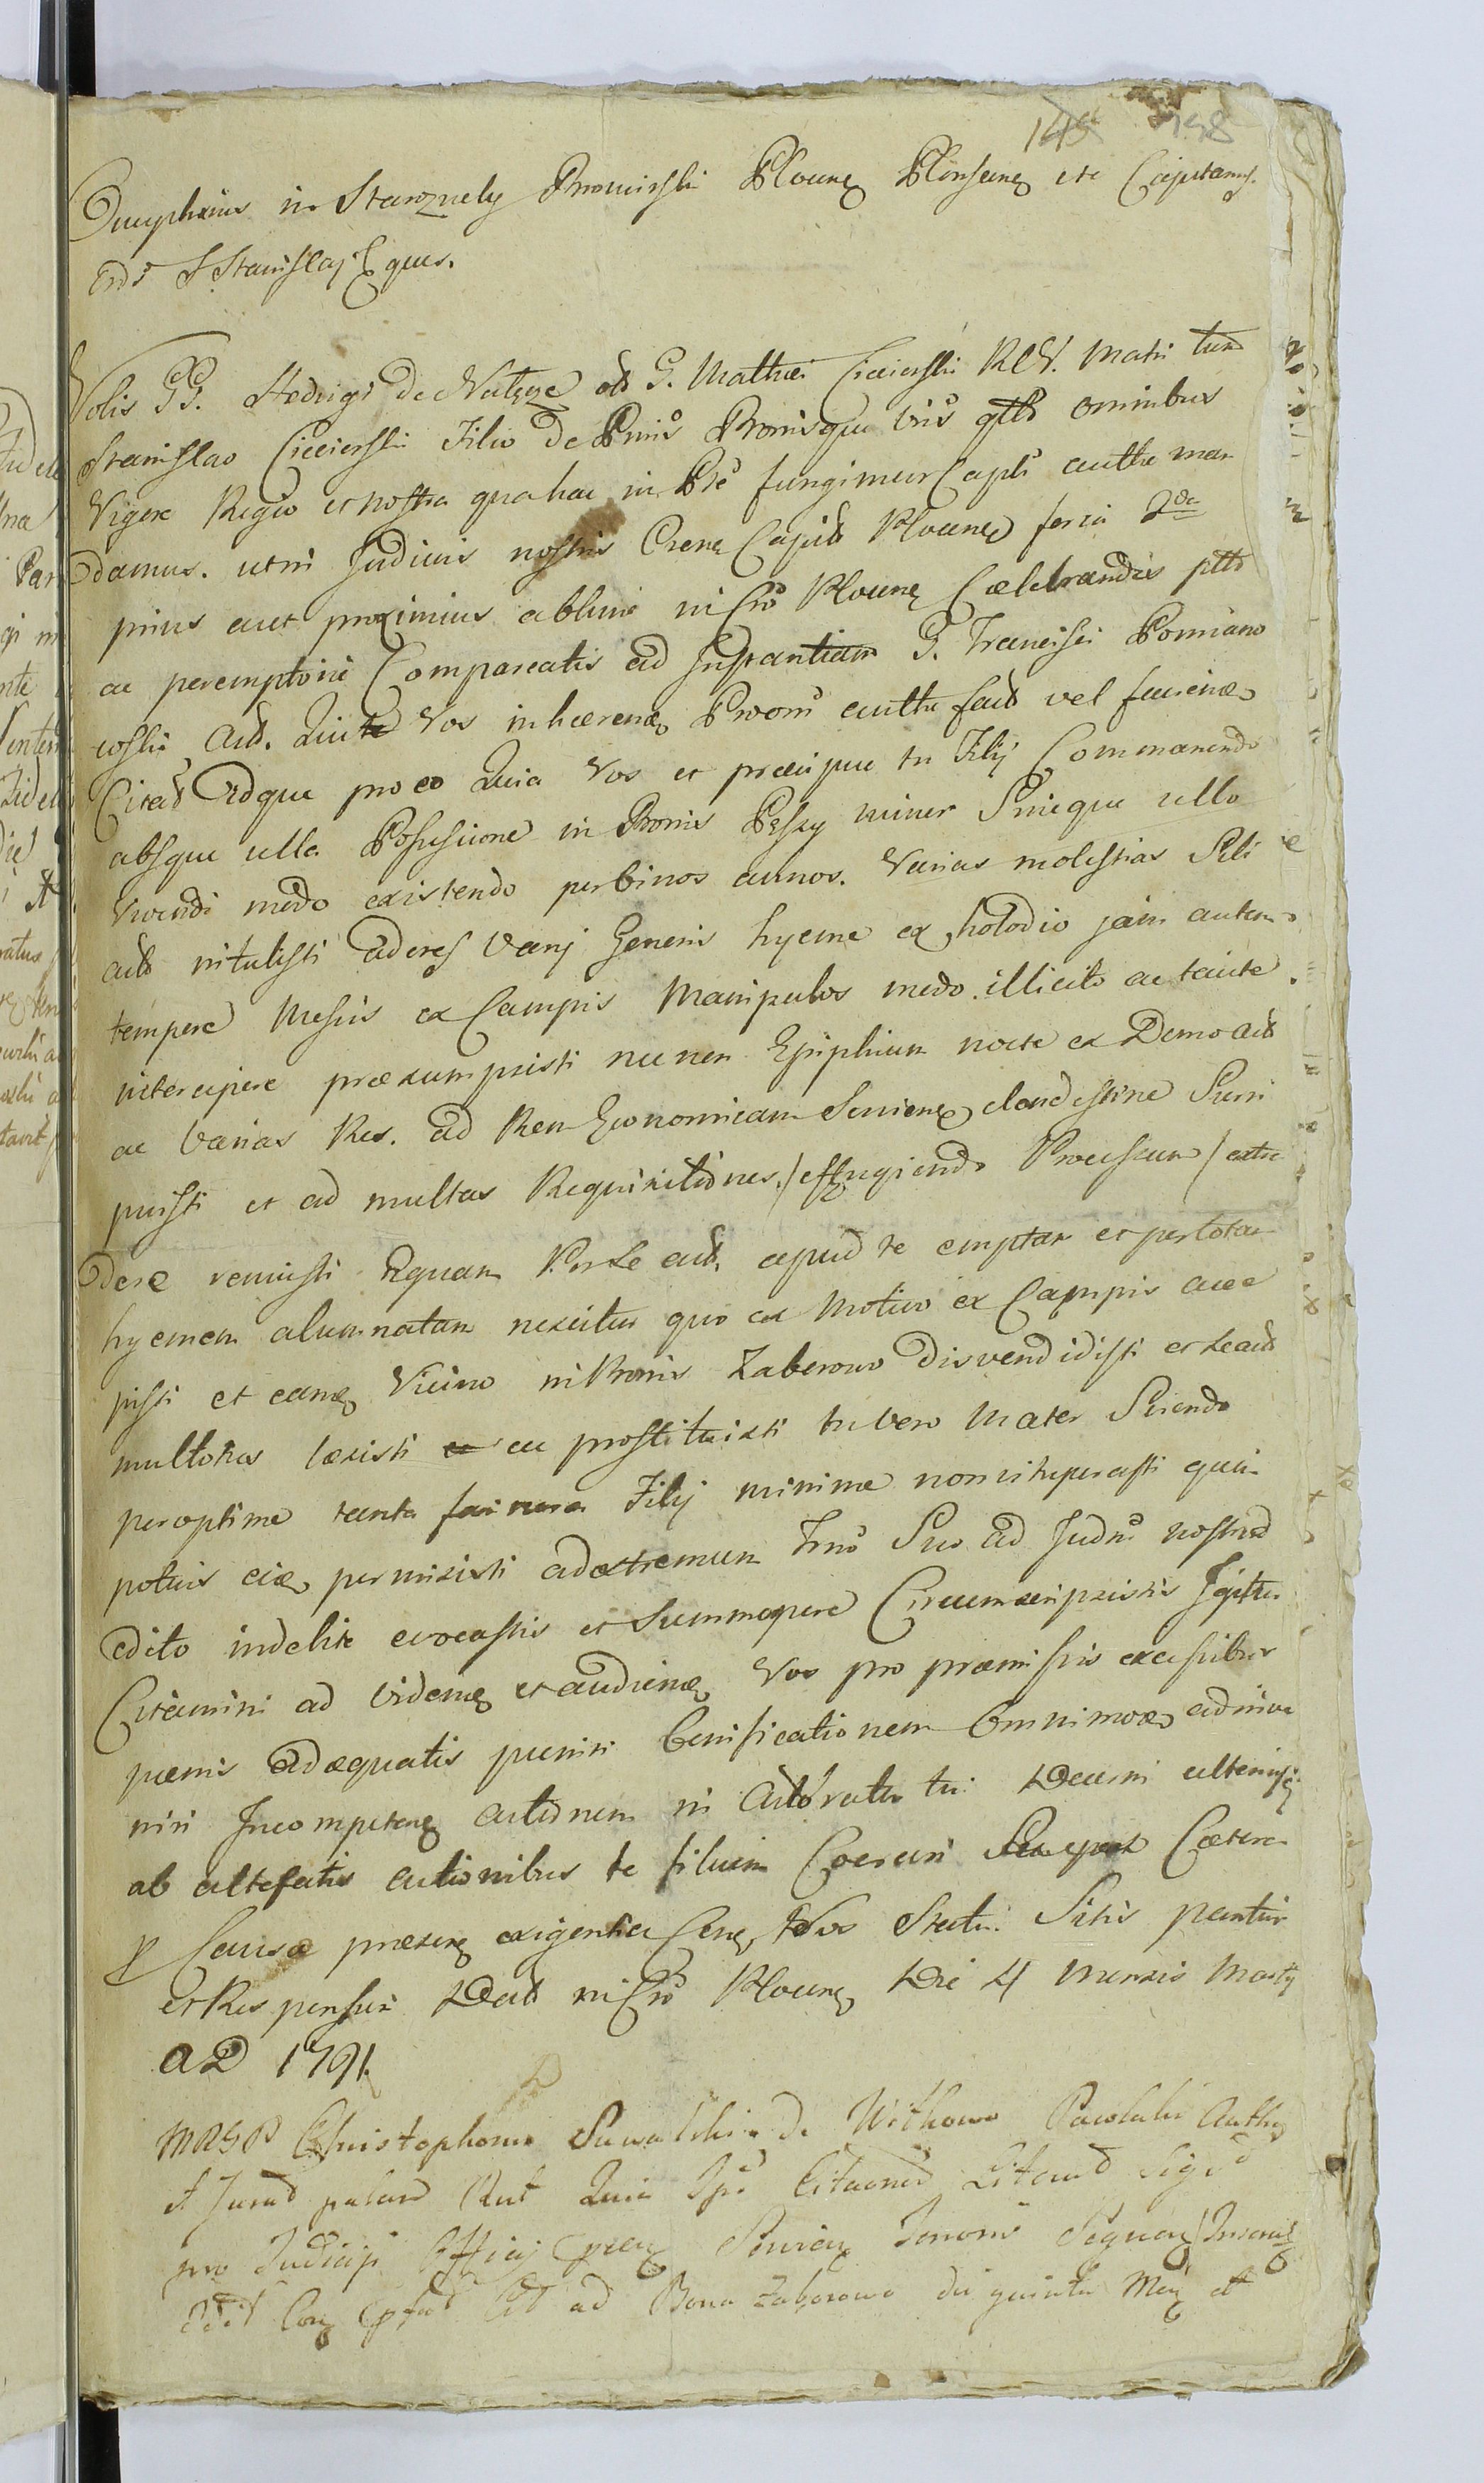 145 158
Onuphrius in Starozreby Bromirski Plocen Plonscens etc Capitaneus
Ords S Stanislaj Eques.
Vobis GG. Hedvigi de Nałęcze ols G. Mathiæ Ciecierski Rel. Matri tum
Stanislao Ciecierski Filio de Bnis Bonisque vris gtlr omnibus
Vigore Regio et nostra qua hac in Pte fungimur Capli autthe man
damus. ut in Judiciis nostris Crens Capit Plocens feria 2da
prius aut proximius abhinc in Cro Plocens Celebrandis ptlr
ac peremptorie Compareatis ad Instantiam G. Francisci Pomiano
wski Act. Qui Vos inhærens Proems autthe fact vel faciens
Citat Idque pro eo Quia Vos et præcipue tu Filij Commanendo
absque ulla Possessione in Bonis minor Sineque ullo
vivendi modo existendo per binos annos. Varias molestias Sibi
acto intulisti ad eres varij Generis hyeme ex holodio jam autem
tempore Messis ex Campis Manipulos modo illicito ac tacite
intercipere præsumpsisti nec non Ephipium nocte ex Domo acts
ac varias Res. ad Rem Economicam Serviens clandestine Surri
puisti et ad multas Requisitiones. / effugiendo Processum / extra
dere renuisti Equam Per Se act. apud te emptam et per totam
hyemem alumnatam nescitur quo ex Motivo ex Campis acce
pisti et eams Vicino in Bonis Zaborowo disvendidisti et Se acto
multoties læsisti ac prostituisti tu vero Mater Sciendo
per optime tanta facinora Filij minime non vituperasti quin
potius eia permisisti ad extremum Tmo Suo ad Judm nostrum
edito indebite evocastis et Summopere Circumscripsistis Igitur
Citamini ad videns et audiens Vos pro præmissis excessibus
pœnis adæquatis puniri Bonificationem Omnimodam adinve
niri Incompetens actionem in Actoratu tui Decerni ulteriusq
ab altefatis actionibus te filium Coerceri Cætera
p Causæ præsens exigentia Cens Vos Statu. Sitis parituri
et Responsuri Dat in Cro Plocens Die 4 Mensis Martij
AD 1791.
MRSP Christophorus Suwalski de Withowo Pacoluhi Authus
et Jurat palam Rut Quia Ipse Citaones Litand Sigd
pro Judicij Officij Pcens Servien Tenoris Sequen Inserus
Cons Cit ad Bona Zaborowo die quinta Mens et